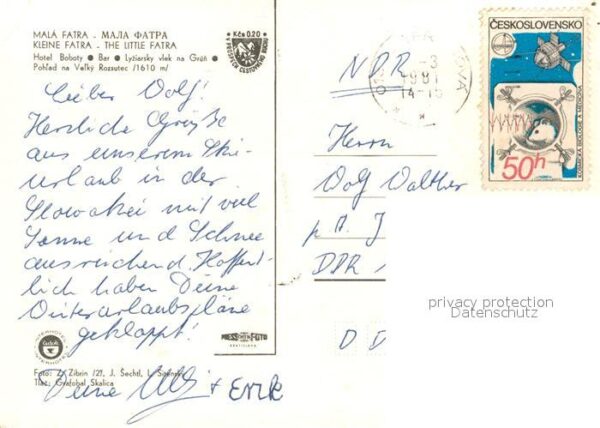 MALÁ FATRA - МАЛА ФАТРА
KLEINE FATRA - THE LITTLE FATRA
Hotel Boboty ● Bar ● Lyžiarsky vlek na Grúň ●
Pohľad na Veľký Rozsutec /1610 m/
Kčs 0.20
Lieber Dolf!
Herzliche Grüße
aus unserem Ski-
urlaub in der
Slowakei mit viel
Sonne und Schnee
ausreichend. Hoffent-
lich haben Deine
Winterurlaubspläne
geklappt!
Deine Ulli + Enrik
Foto: Z. Zibrin /2/, J. Šechtl, L. Sitenský
Tlač: Grafobal Skalica
PRESSFOTO
BRATISLAVA
NDR
Herrn
Dolf Walther
DDR
D D
-3
1981
14-15
ČESKOSLOVENSKO
50h
privacy protection
Datenschutz